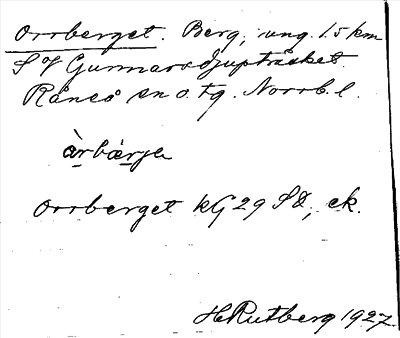 Orrberget. Berg, ung. 1.5 km
S of Gunnarsdjupträsket.
Råneå sn o. tg. Norrb. l.
àrbærje
Orrberget kG 29 SO, ek.
H Rutberg 1927.